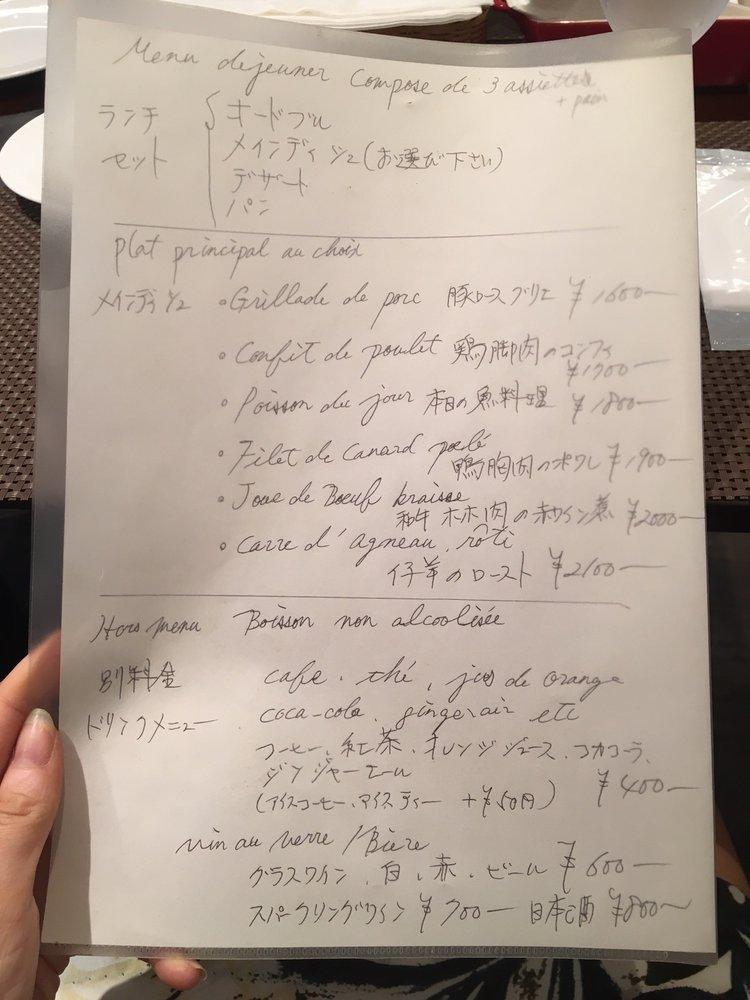 Menu dejeuner compose de 3 assiettes
+ pain
ランチ オードブル
セット メインディッシュ(お選び下さい)
デザート
パン
Plat principal au choix
メインディッシュ • Grillade de porc 豚ロースグリエ ¥1600ー
• Confit de poulet 鶏脚肉のコンフィ
¥1700ー
• Poisson du jour 本日の魚料理 ¥1800ー
• Filet de Canard poelé
鴨胸肉のポワレ ¥1900ー
• Joue de Bœuf braisee
和牛ホホ肉の赤ワイン煮 ¥2000ー
• Carre d'agneau rôti
仔羊のロースト ¥2100ー
Hors menu Boisson non alcoolisée
別料金 cafe. thé, jus de orange
ドリンクメニュー coca-cola. ginger air etc
コーヒー、紅茶、オレンジジュース、コカコーラ、
ジンジャーエール ¥400ー
(アイスコーヒー、アイスティー +¥50円)
vin au verre / Bière
グラスワイン、白、赤、ビール ¥600ー
スパークリングワイン ¥700ー 日本酒 ¥800〜